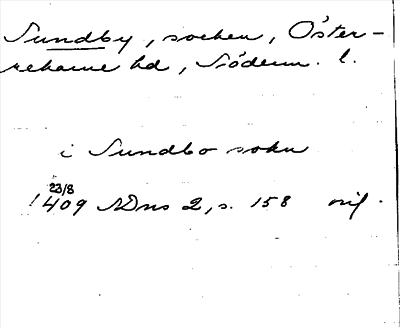 Sundby, socken, Öster-
rekarne hd, Söderm. l.
i Sundbo sokn
23/8
1409 SDns 2, s. 158 orig.